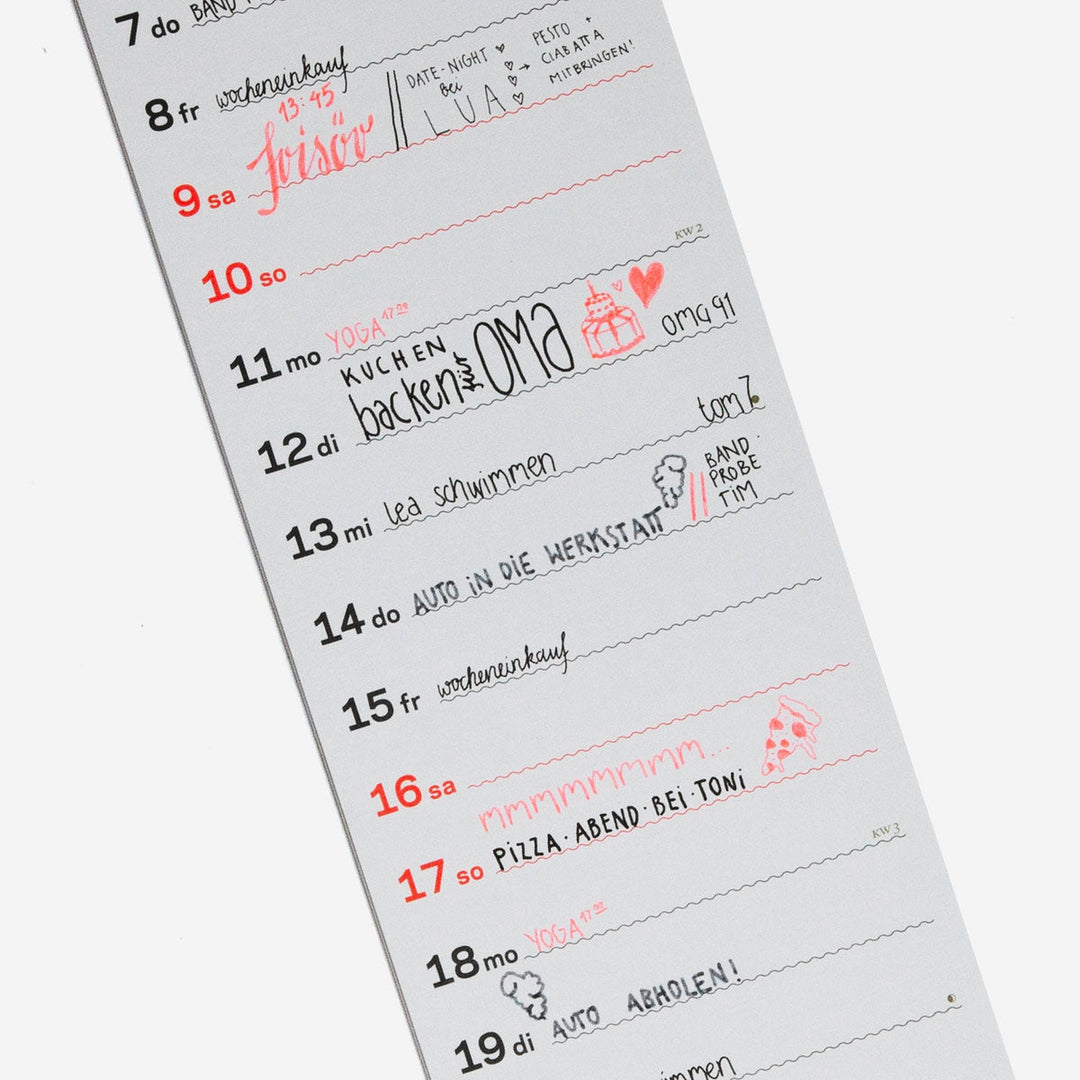 7 do BAND
8 fr wocheneinkauf
13:45
9 sa frisör // DATE-NIGHT ♥
bei
LUA
→ PESTO +
CIABATTA
MITBRINGEN!
10 so
KW 2
11 mo YOGA 17 00
12 di KUCHEN
backen
OMA
oma 91
13 mi lea schwimmen
tom 7
14 do AUTO IN DIE WERKSTATT
// BAND
PROBE
TIM
15 fr wocheneinkauf
16 sa
mmmmmmmm...
17 so PIZZA·ABEND·BEI·TONI
KW 3
18 mo YOGA 17 00
19 di AUTO ABHOLEN!